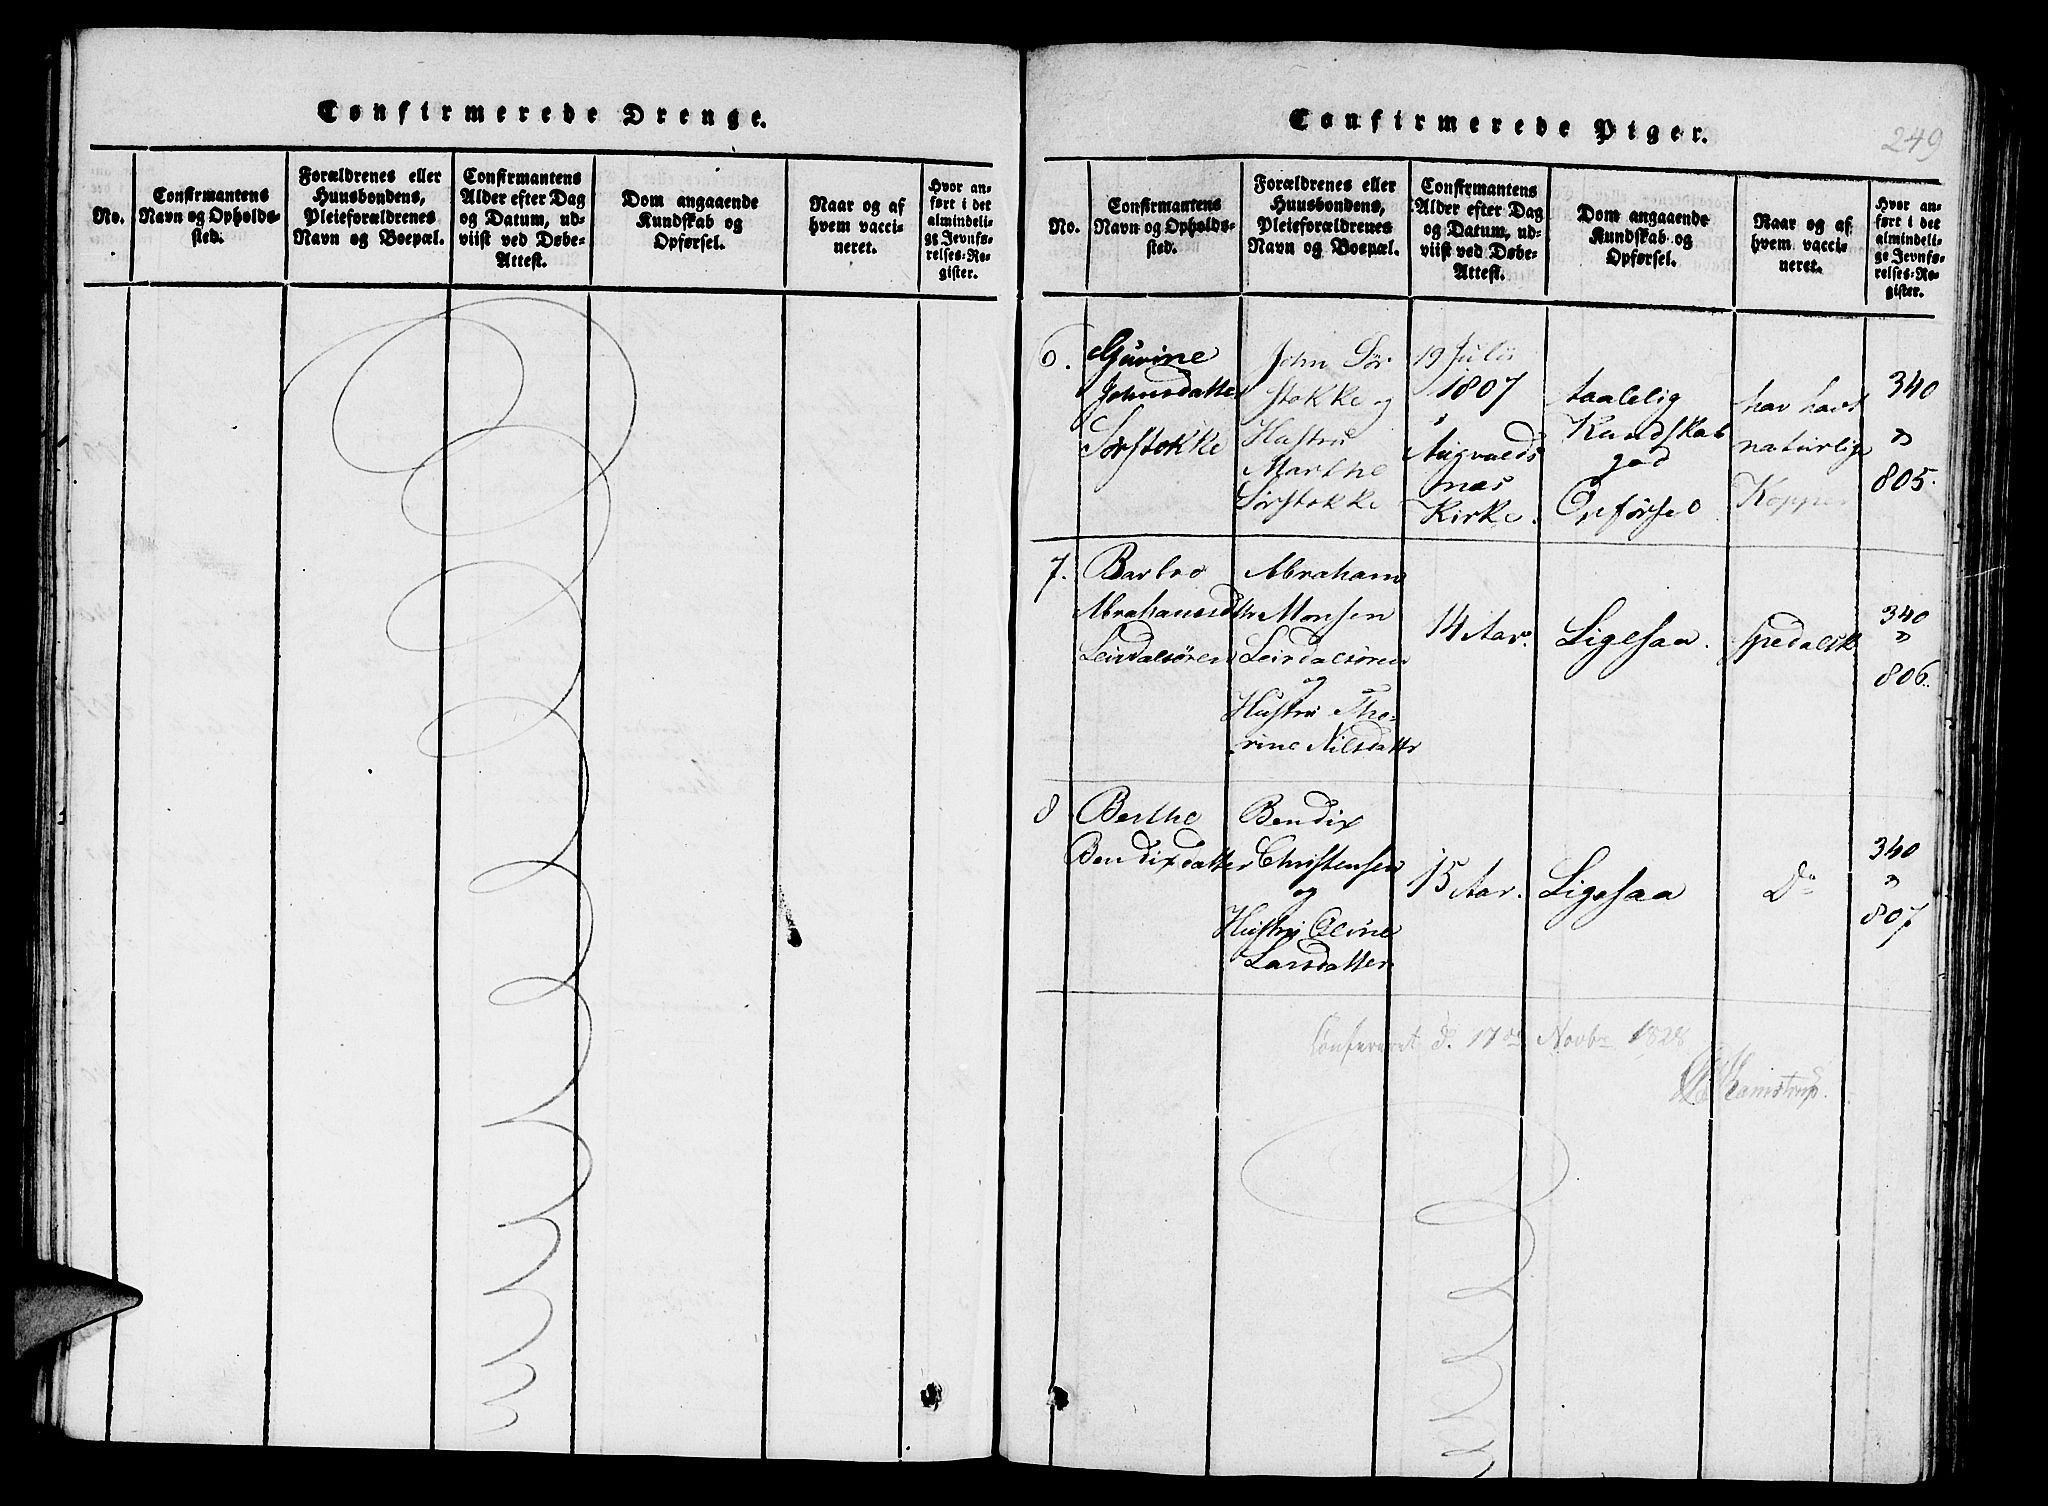 Confirmerede Drenge.
No.
Confirmantens
Navn og Opholds-
sted.
Forældrenes eller
Huusbondens,
Pleieforældrenes
Navn og Boepæl.
Confirmantens
Alder efter Dag
og Datum, ud-
viist ved Døbe-
Attest.
Dom angaaende
Kundskab og
Opførsel.
Naar og af
hvem vacci-
neret.
Hvor an-
ført i det
almindeli-
ge Jevnfø-
relses-Re-
gister.
Confirmerede Piger.
249
No.
Confirmantens
Navn og Opholds-
sted.
Forældrenes eller
Huusbondens,
Pleieforældrenes
Navn og Boepæl.
Confirmantens
Alder efter Dag
og Datum, ud-
viist ved Døbe-
Attest.
Dom angaaende
Kundskab og
Opførsel.
Naar og af
hvem vacci-
neret.
Hvor an-
ført i det
almindeli-
ge Jevnfø-
relses-Re-
gister.
6.
Gurine
Johnsdatter
Sørstokke
John Sør
stokke og
Hustru
Marthe
Sørstokke
19 Julii
1807
i
Augvalds
næs
Kirke.
taalelig
Kundskab
god
Opførsel
har havt
naturlige
Kopper
340
"
805.
7.
Barbro
Abrahamsdtr
Leirdalsøren
Abraham
Monsen
Leirdalsøren
og
Hustru Tho-
rine Nilsdattr
14 Aar.
Ligesaa.
spedalsk
340
"
806.
8
Berthe
Bendixdatter
Bendix
Christensen
og
Hustru Oline
Larsdatter
15 Aar.
Ligesaa
Do
340
"
807
Confereret d. 17de Novbr 1828
Kamstrup.